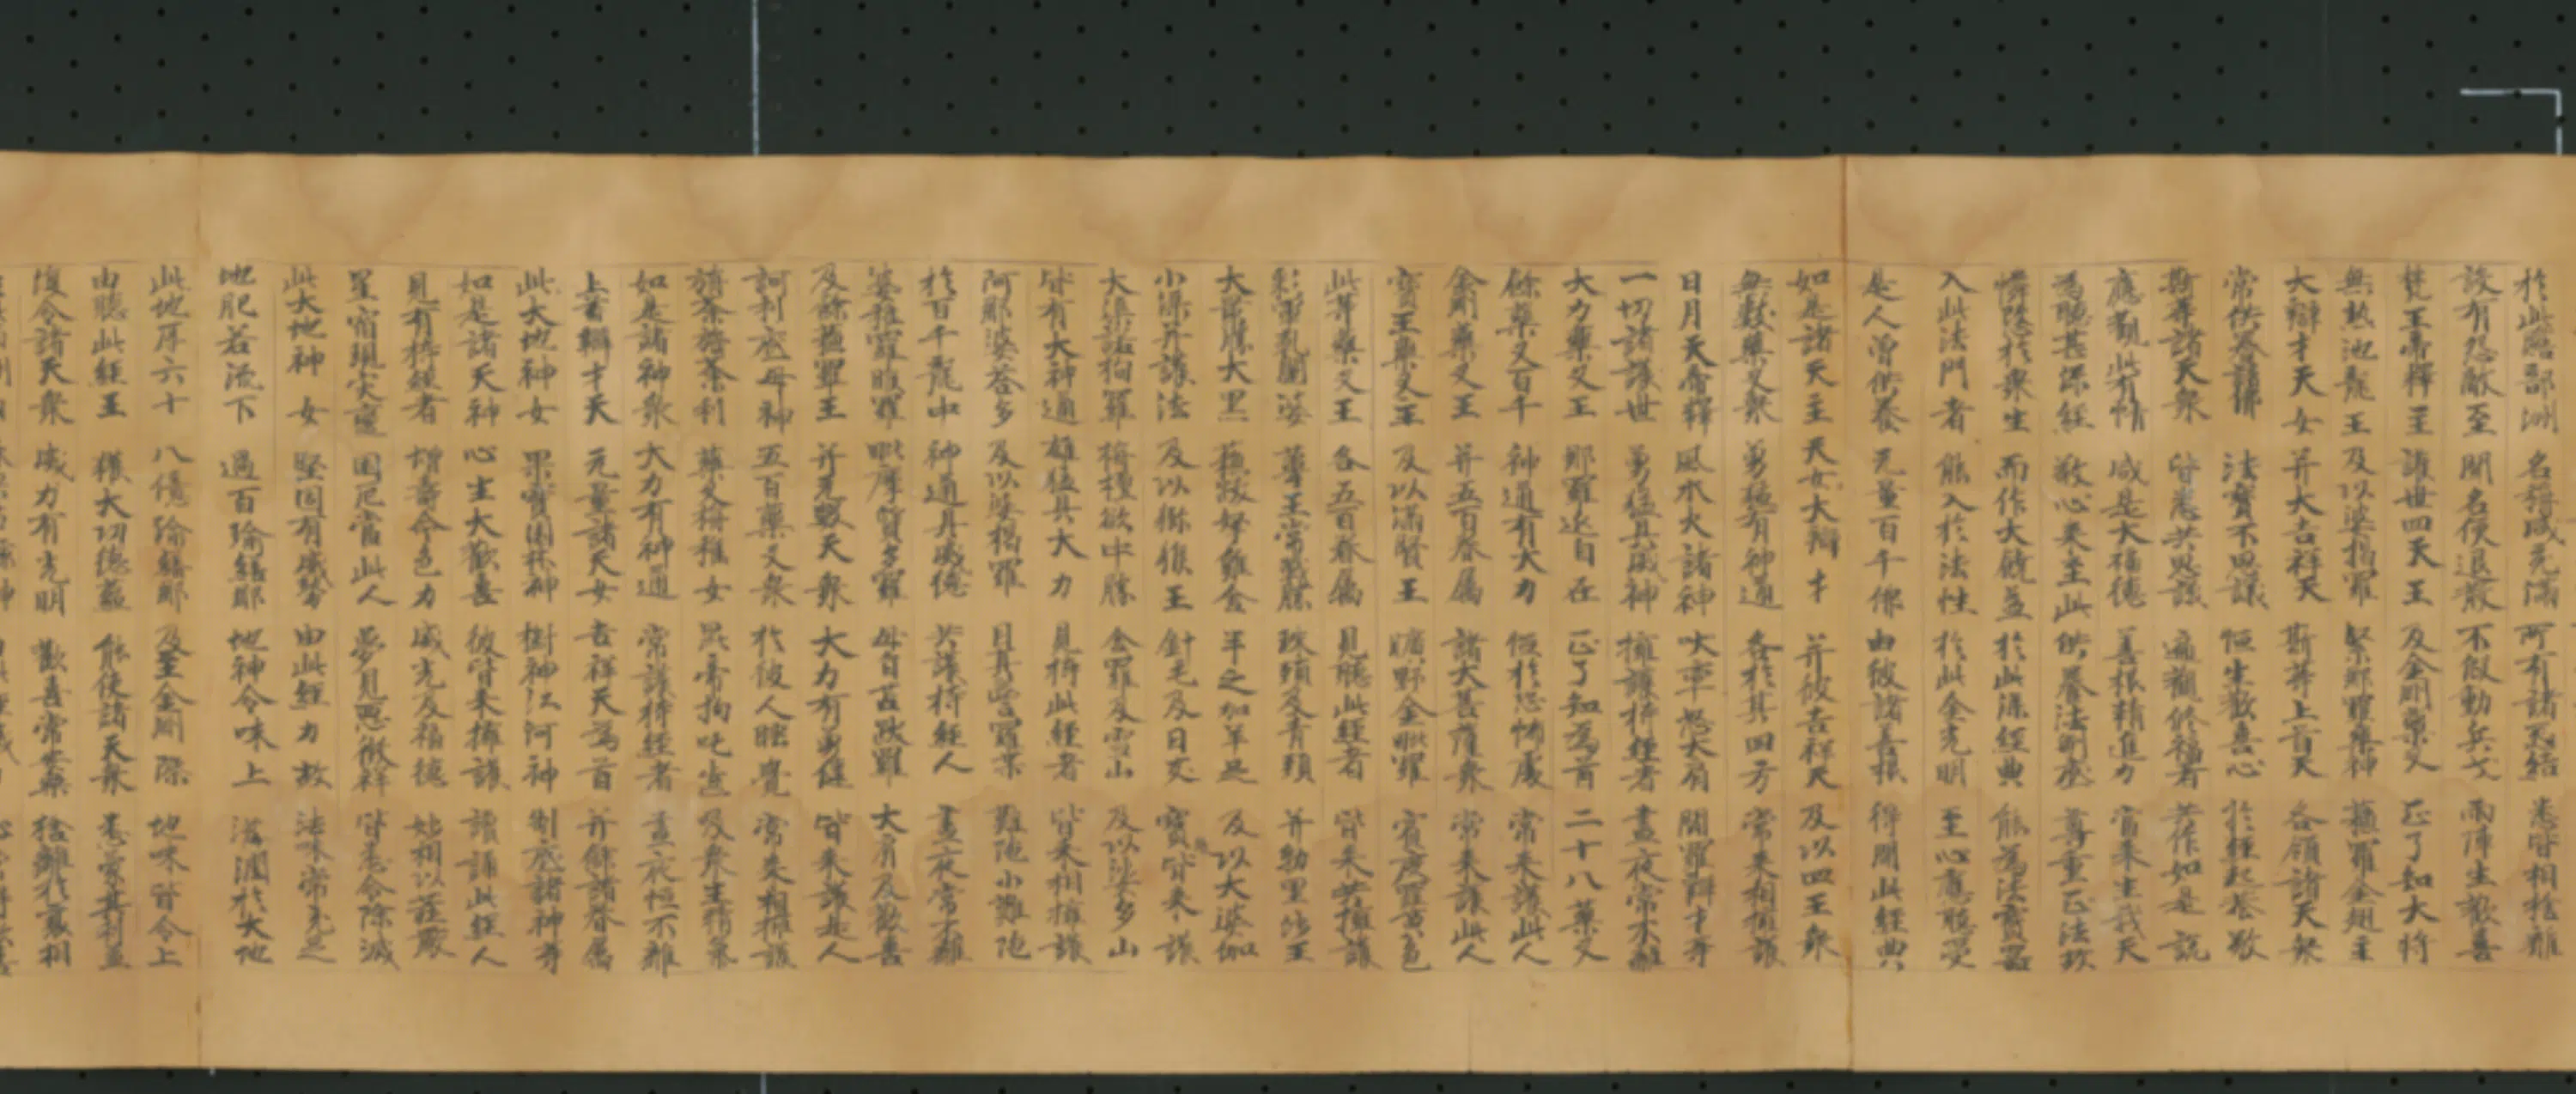 於此贍部洲 名稱咸充滿 所有諸怨結 悉皆相捨離
設有怨敵至 聞名便退散 不假動兵戈 兩陣生歡喜
梵王帝釋主 護世四天王 及金剛藥叉 正了知大將
無熱池龍王 及以娑揭羅 緊那羅樂神 蘇羅金翅主
大辯才天女 并大吉祥天 斯等上首天 各領諸天衆
常供養諸佛 法寶不思議 恒生歡喜心 於經起恭敬
斯等諸天衆 皆悉共思議 遍觀修福者 共作如是說
應觀此有情 咸是大福德 善根精進力 當來生我天
為聽甚深經 敬心來至此 供養法制底 尊重正法故
憐愍於衆生 而作大饒益 於此深經典 能為法寶器
入此法門者 能入於法性 於此金光明 至心應聽受
是人曾供養 无量百千佛 由彼諸善根 得聞此經典
如是諸天主 天女大辯才 并彼吉祥天 及以四王衆
無數藥叉衆 勇猛有神通 各於其四方 常來相擁護
日月天帝釋 風水火諸神 吠率怒大肩 閻羅辯才等
一切諸護世 勇猛具威神 擁護持經者 晝夜常不離
大力藥叉王 那羅延自在 正了知為首 二十八藥叉
餘藥叉百千 神通有大力 恒於恐怖處 常來護此人
金剛藥叉王 并五百眷屬 諸大菩薩衆 常來護此人
寶王藥叉王 及以滿賢王 曠野金毗羅 賓度羅黃色
此等藥叉王 各五百眷屬 見聽此經者 皆來共擁護
彩軍乾闥婆 葦王常戰勝 珠頸及青頸 并勃里沙王
大最勝大黑 蘇跋拏雞舍 半之迦羊足 及以大婆伽
小渠并護法 及以獼猴王 針毛及日支 寶髮皆來護
大渠諾拘羅 栴檀欲中勝 舍羅及雪山 及以娑多山
皆有大神通 雄猛具大力 見持此經者 皆來相擁護
阿那婆荅多 及以娑揭羅 目真 羅葉 難陀小難陀
於百千龍中 神通具威德 共護持經人 晝夜常不離
婆稚羅睺羅 毗摩質多羅 母旨苫跋羅 大肩及歡喜
及餘蘇羅王 并无數天衆 大力有勇健 皆來護是人
訶利底母神 五百藥叉衆 於彼人睡覺 常來相擁護
旃荼旃荼利 藥叉旃稚女 昆帝拘吒齒 吸衆生精氣
如是諸神衆 大力有神通 常護持經者 晝夜恒不離
上首辯才天 无量諸天女 吉祥天為首 并餘諸眷屬
此大地神女 果實園林神 樹神江河神 制底諸神等
如是諸天神 心生大歡喜 彼皆來擁護 讀誦此經人
見有持經者 增壽命色力 威光及福德 妙相以莊嚴
星宿現災變 困厄當此人 夢見惡徵祥 皆悉令除滅
此大地神女 堅固有威勢 由此經力故 法味常充足
地肥若流下 過百踰繕那 地神令味上 滋潤於大地
此地厚六十 八億踰繕那 乃至金剛際 地味皆令上
由聽此經王 獲大功德蘊 能使諸天衆 悉蒙其利益
復令諸天衆 威力有光明 歡喜常安樂 捨離於衰相